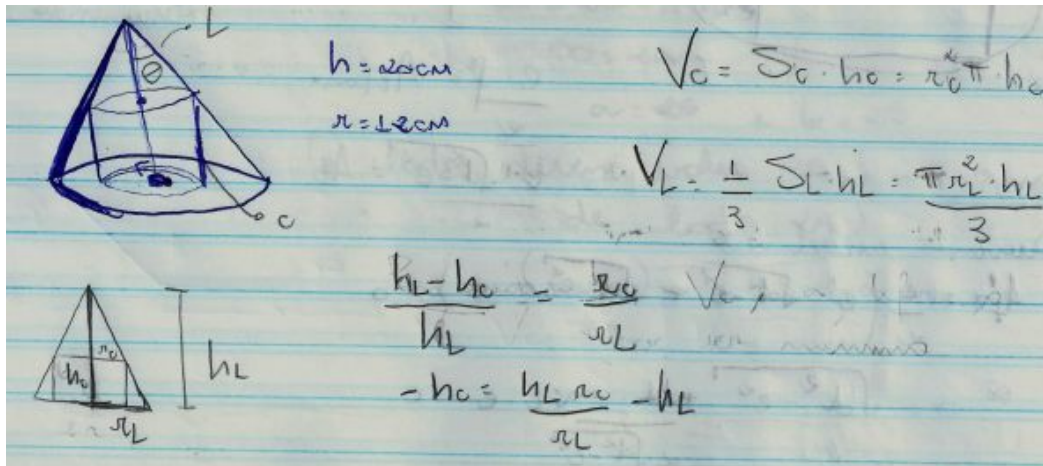 L
θ
c
h = 20cm
r = 12cm
V_c = S_c · h_c = r_c² π · h_c
V_L = 1/3 S_L · h_L = π r_L² · h_L / 3
(h_L - h_c) / h_L = r_c / r_L
-h_c = h_L r_c / r_L - h_L
r_c
h_c
h_L
r_L